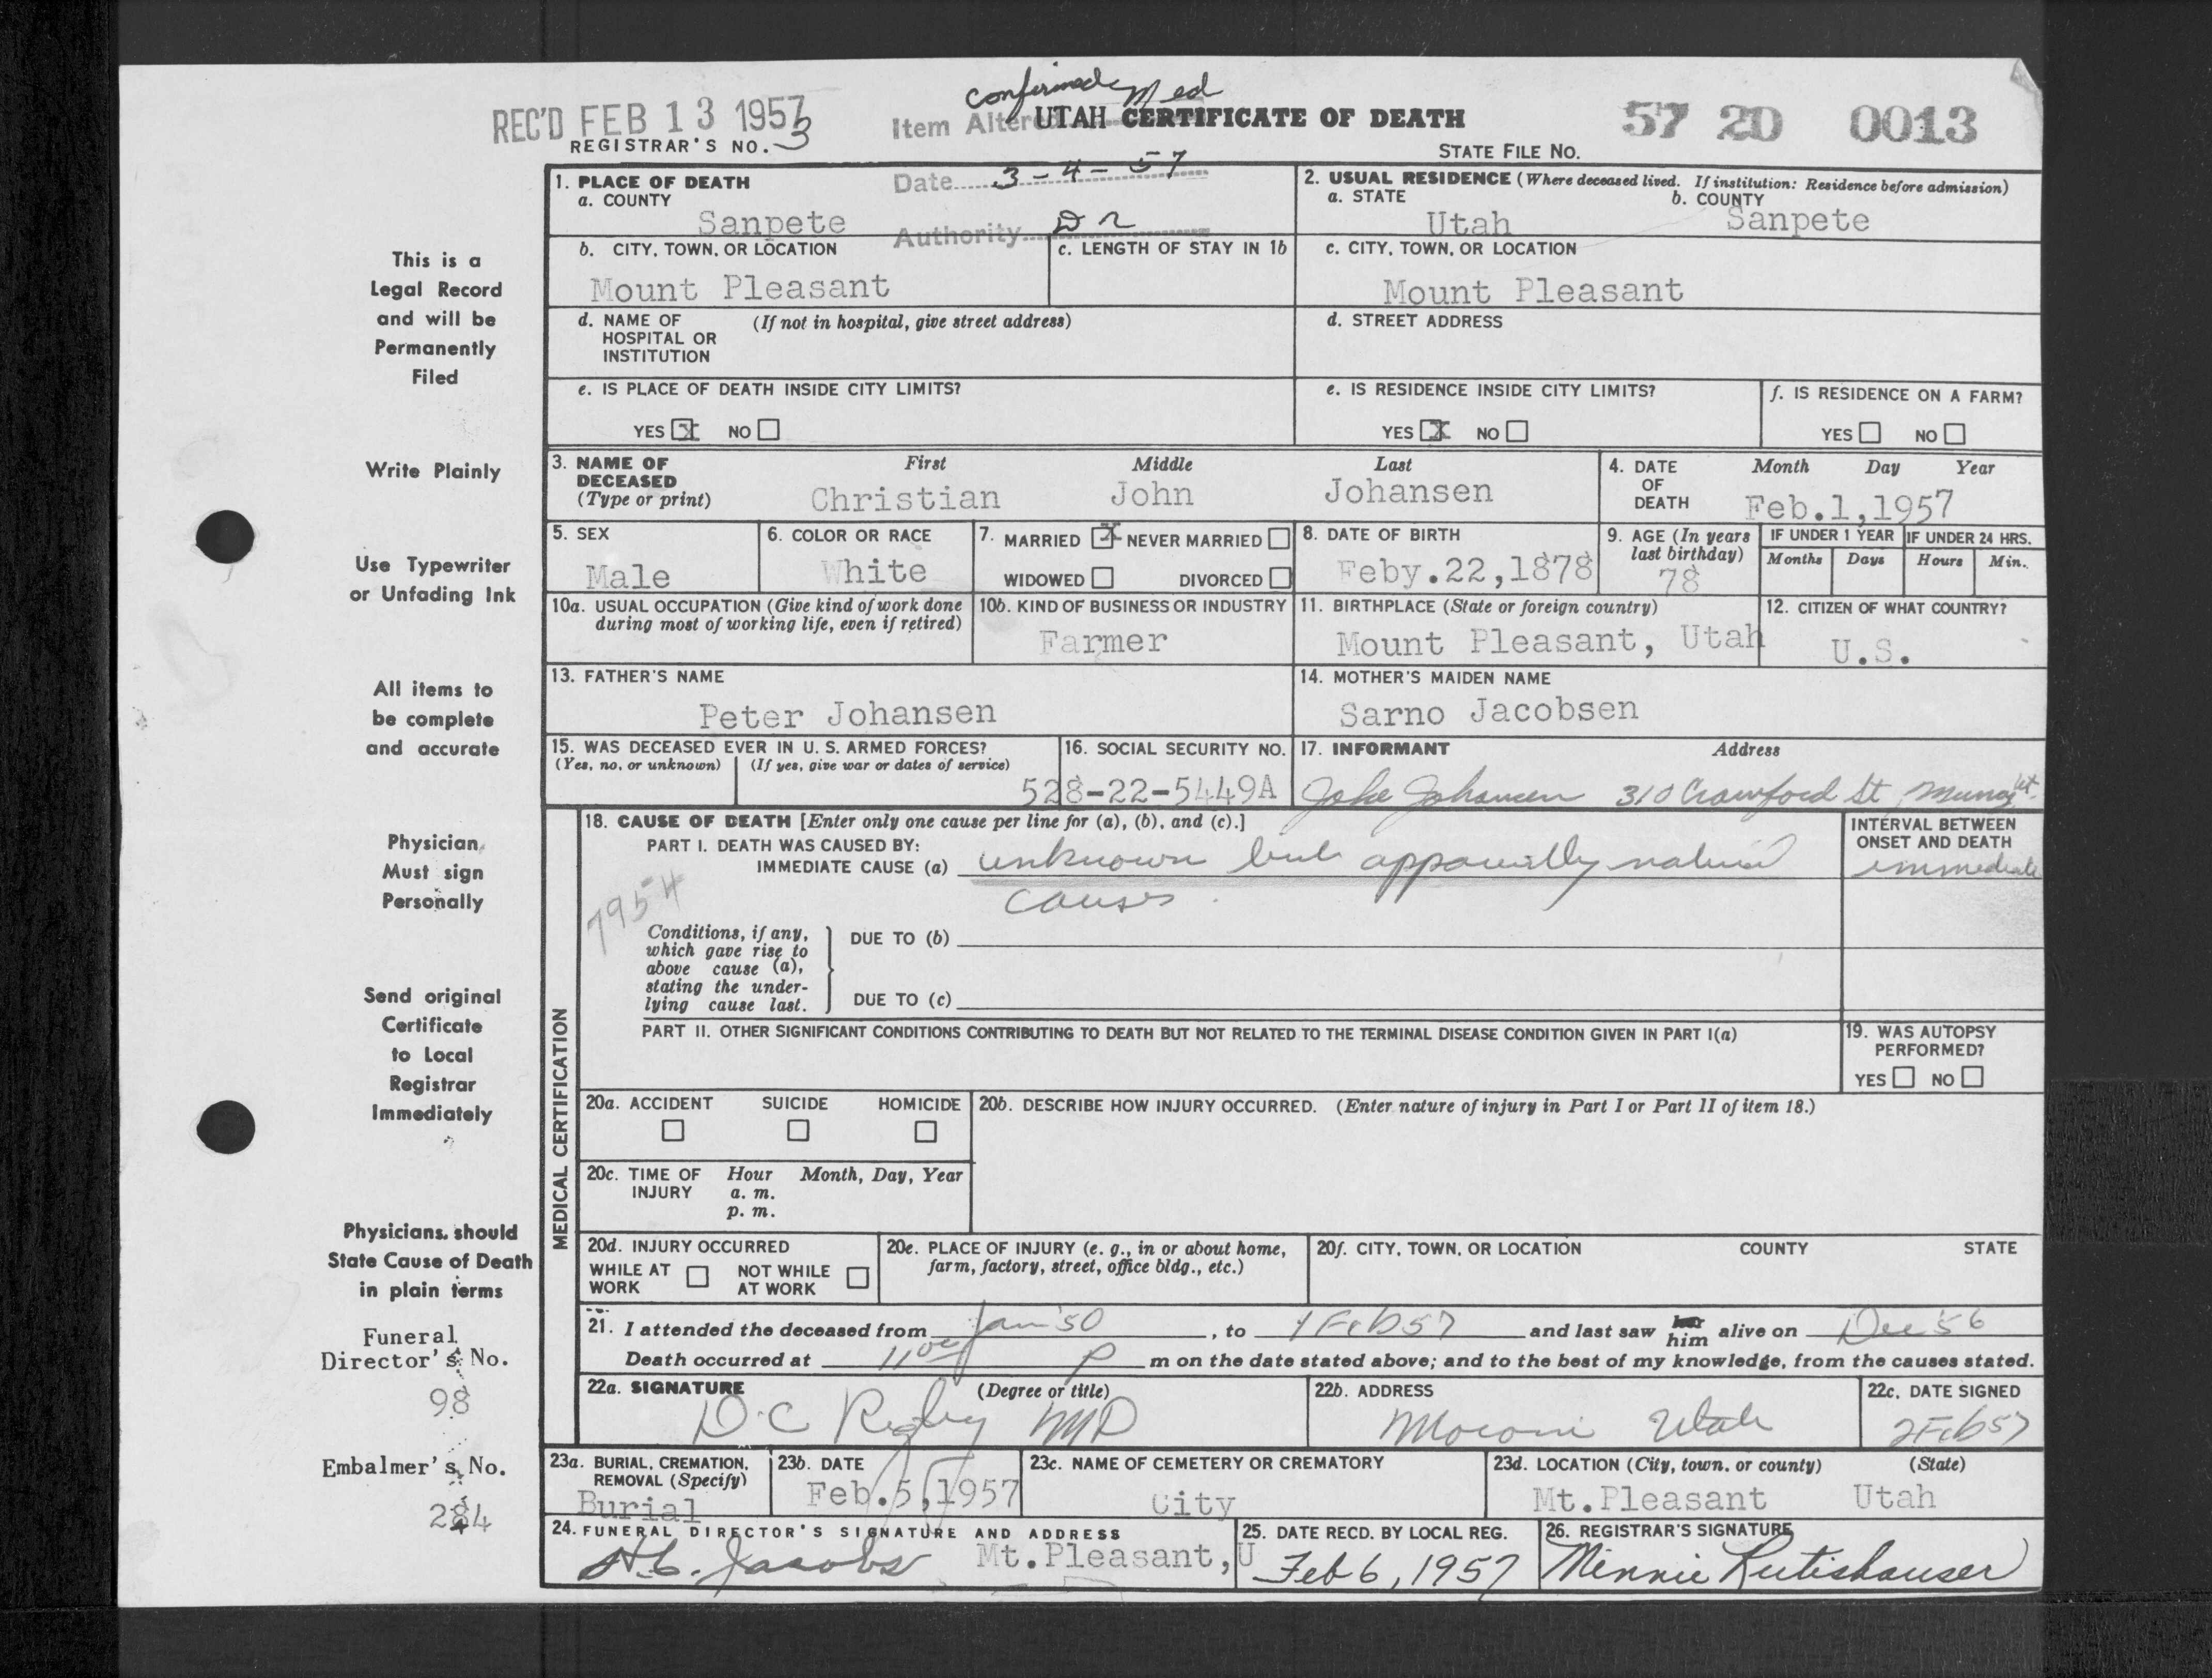 confirmed Med
REC'D FEB 13 1957
Item Altered UTAH CERTIFICATE OF DEATH
57 20 0013
REGISTRAR'S NO. 3
STATE FILE No.
Date 3-4-57
Authority Dr
1. PLACE OF DEATH
a. COUNTY
Sanpete
2. USUAL RESIDENCE (Where deceased lived. If institution: Residence before admission)
a. STATE b. COUNTY
Utah Sanpete
b. CITY, TOWN, OR LOCATION
Mount Pleasant
c. LENGTH OF STAY IN 1b
c. CITY, TOWN, OR LOCATION
Mount Pleasant
d. NAME OF (If not in hospital, give street address)
HOSPITAL OR
INSTITUTION
d. STREET ADDRESS
e. IS PLACE OF DEATH INSIDE CITY LIMITS?
YES X NO
e. IS RESIDENCE INSIDE CITY LIMITS?
YES X NO
f. IS RESIDENCE ON A FARM?
YES NO
3. NAME OF First Middle Last
DECEASED
(Type or print) Christian John Johansen
4. DATE Month Day Year
OF
DEATH Feb.1,1957
5. SEX
Male
6. COLOR OR RACE
White
7. MARRIED X NEVER MARRIED
WIDOWED DIVORCED
8. DATE OF BIRTH
Feby.22,1878
9. AGE (In years
last birthday)
78
IF UNDER 1 YEAR IF UNDER 24 HRS.
Months Days Hours Min.
10a. USUAL OCCUPATION (Give kind of work done
during most of working life, even if retired)
10b. KIND OF BUSINESS OR INDUSTRY
Farmer
11. BIRTHPLACE (State or foreign country)
Mount Pleasant, Utah
12. CITIZEN OF WHAT COUNTRY?
U.S.
13. FATHER'S NAME
Peter Johansen
14. MOTHER'S MAIDEN NAME
Sarno Jacobsen
15. WAS DECEASED EVER IN U. S. ARMED FORCES?
(Yes, no, or unknown) (If yes, give war or dates of service)
16. SOCIAL SECURITY NO.
528-22-5449A
17. INFORMANT Address
Johansen 310 Crawford St Murray Ut.
MEDICAL CERTIFICATION
18. CAUSE OF DEATH [Enter only one cause per line for (a), (b), and (c).]
PART I. DEATH WAS CAUSED BY:
IMMEDIATE CAUSE (a) unknown but apparently natural
causes.
INTERVAL BETWEEN
ONSET AND DEATH
immediate
7954
Conditions, if any,
which gave rise to
above cause (a),
stating the under-
lying cause last.
DUE TO (b)
DUE TO (c)
PART II. OTHER SIGNIFICANT CONDITIONS CONTRIBUTING TO DEATH BUT NOT RELATED TO THE TERMINAL DISEASE CONDITION GIVEN IN PART I(a)
19. WAS AUTOPSY
PERFORMED?
YES NO
20a. ACCIDENT SUICIDE HOMICIDE
20b. DESCRIBE HOW INJURY OCCURRED. (Enter nature of injury in Part I or Part II of item 18.)
20c. TIME OF Hour Month, Day, Year
INJURY a. m.
p. m.
20d. INJURY OCCURRED
WHILE AT NOT WHILE
WORK AT WORK
20e. PLACE OF INJURY (e. g., in or about home,
farm, factory, street, office bldg., etc.)
20f. CITY, TOWN, OR LOCATION COUNTY STATE
21. I attended the deceased from Jan '50, to 1 Feb 57 and last saw her him alive on Dec '56
Death occurred at 11 00 P m on the date stated above; and to the best of my knowledge, from the causes stated.
22a. SIGNATURE (Degree or title)
D.C Rigby MD
22b. ADDRESS
Moroni Utah
22c. DATE SIGNED
2 Feb 57
23a. BURIAL, CREMATION,
REMOVAL (Specify)
Burial
23b. DATE
Feb.5,1957
23c. NAME OF CEMETERY OR CREMATORY
City
23d. LOCATION (City, town, or county) (State)
Mt.Pleasant Utah
24. FUNERAL DIRECTOR'S SIGNATURE AND ADDRESS
Jacobs Mt.Pleasant,U
25. DATE RECD. BY LOCAL REG.
Feb 6, 1957
26. REGISTRAR'S SIGNATURE
Minnie Rutishauser
This is a
Legal Record
and will be
Permanently
Filed
Write Plainly
Use Typewriter
or Unfading Ink
All items to
be complete
and accurate
Physician
Must sign
Personally
Send original
Certificate
to Local
Registrar
Immediately
Physicians should
State Cause of Death
in plain terms
Funeral
Director's No.
98
Embalmer's No.
284